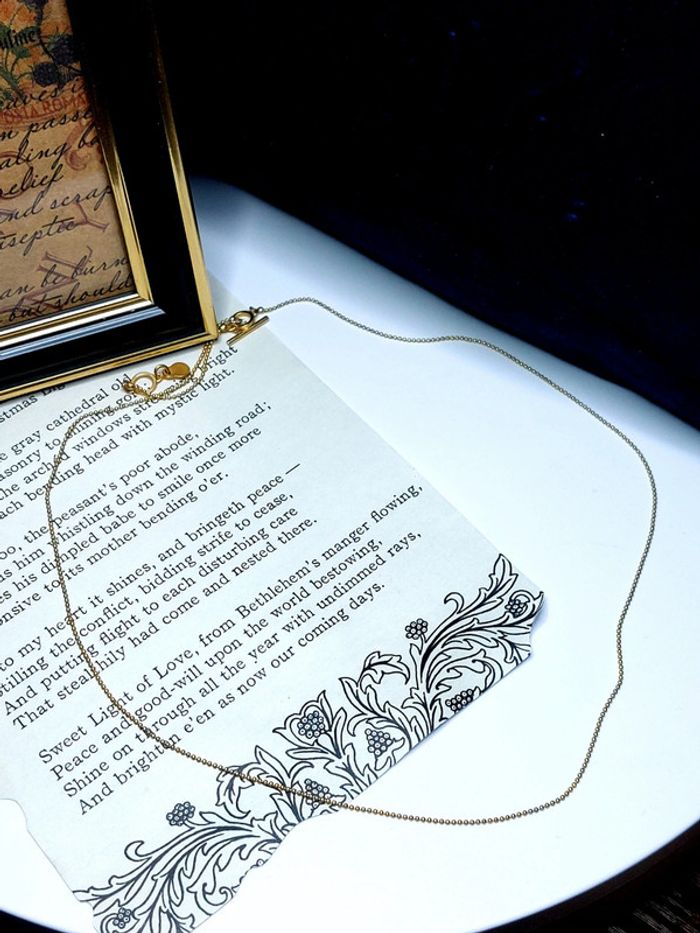 uline
eaves i
OSIA ROMA
n passe
aling ba
relief
nd scrap
iseptic
an be burn
but should
stmas
gray cathedral
asonry to shining
the arched windows
each bending head with mystic light.
too, the peasant's poor abode,
him whistling down the winding road;
es his dimpled babe to smile once more
onsive to its mother bending o'er.
to my heart it shines, and bringeth peace —
Stilling the conflict, bidding strife to cease,
And putting flight to each disturbing care
That stealthily had come and nested there.
Sweet Light of Love, from Bethlehem's manger flowing,
Peace and good-will upon the world bestowing,
Shine on through all the year with undimmed rays,
And brighten e'en as now our coming days.